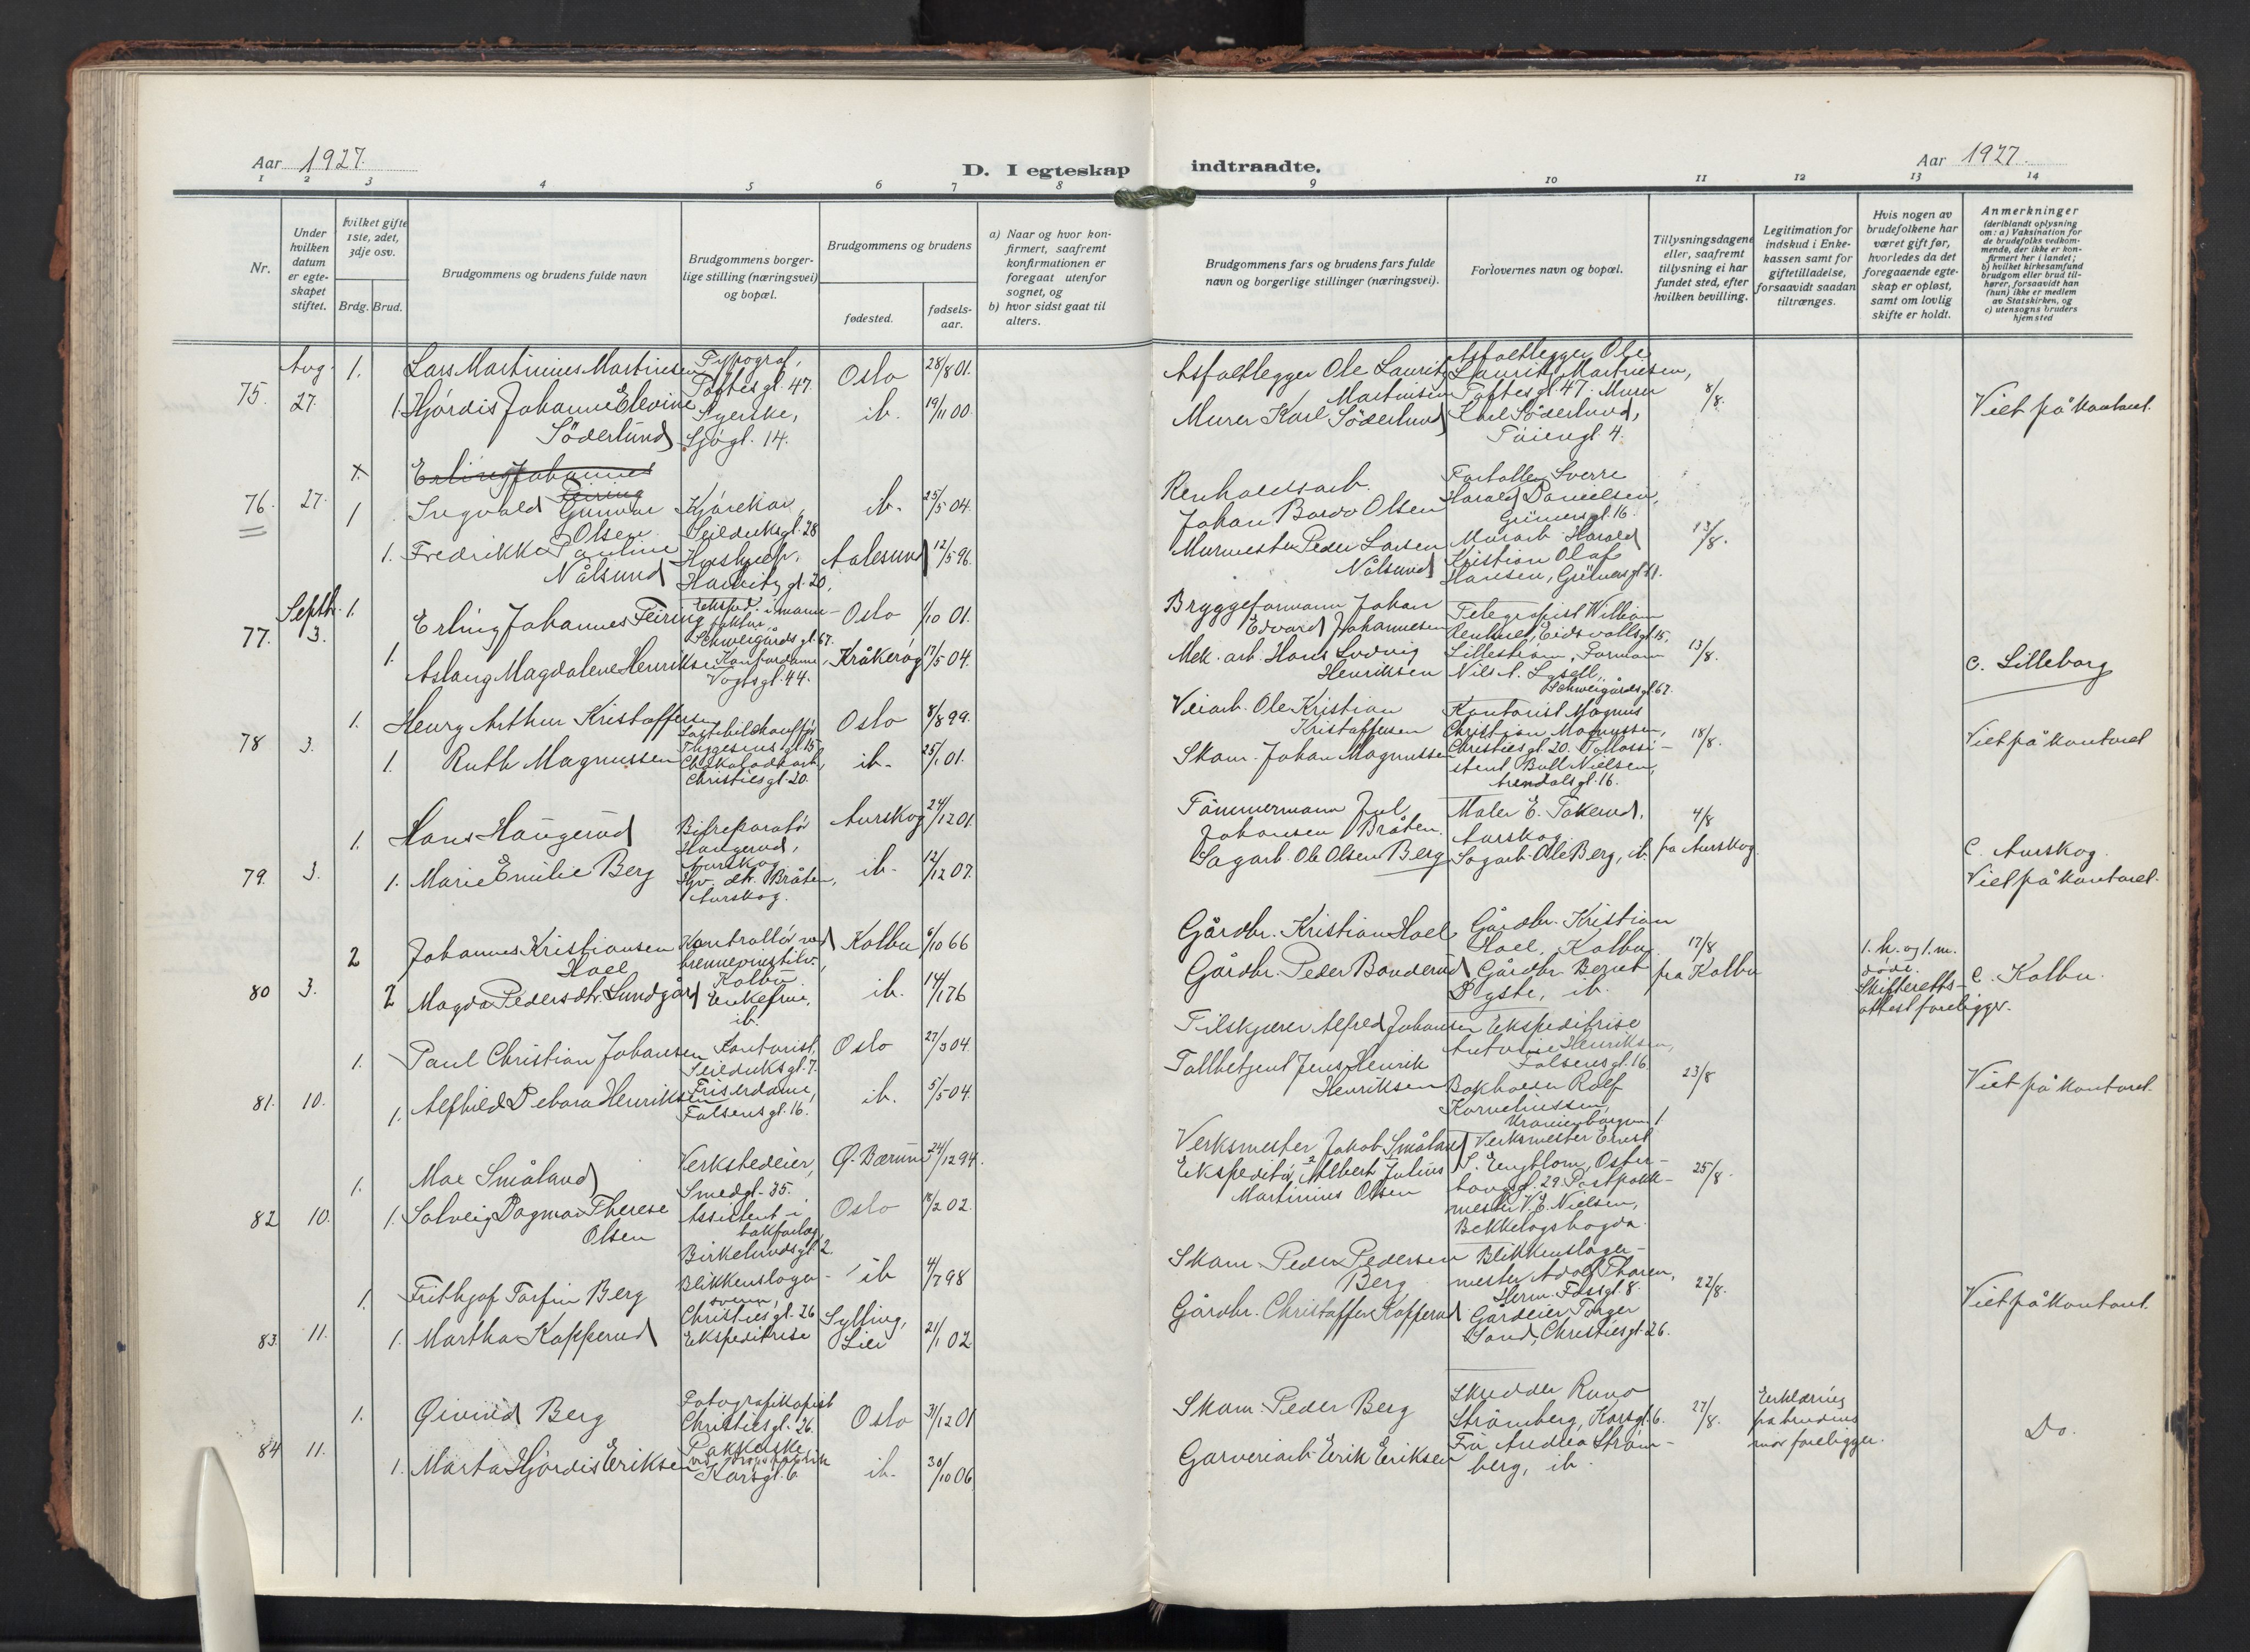 Aar 1927.
D. I egteskap indtraadte.
Aar 1927.
1 2 3 4 5 6 7 8 9 10 11 12 13 14
Nr.
Under hvilken datum er egteskapet stiftet.
Hvilket gifte 1ste, 2det, 3dje osv.
Brdg. Brud.
Brudgommens og brudens fulde navn
Brudgommens borgerlige stilling (næringsvei) og bopæl.
Brudgommens og brudens
fødested.
fødselsaar.
a) Naar og hvor konfirmert, saafremt konfirmationen er foregaat utenfor sognet, og
b) hvor sidst gaat til alters.
Brudgommens fars og brudens fars fulde navn og borgerlige stillinger (næringsvei).
Forlovernes navn og bopæl.
Tillysningsdagene eller, saafremt tillysning ei har fundet sted, efter hvilken bevilling.
Legitimation for indskud i Enkekassen samt for giftetilladelse, forsaavidt saadan tiltrænges.
Hvis nogen av brudefolkene har været gift før, hvorledes da det foregaaende egteskap er opløst, samt om lovlig skifte er holdt.
Anmerkninger (deriblandt oplysning om: a) Vaksination for de brudefolks vedkommende, der ikke er konfirmert her i landet; b) hvilket kirkesamfund brudgom eller brud tilhører, forsaavidt han (hun) ikke er medlem av Statskirken, og c) utensogns bruders hjemsted
75. Aug. 27. 1. Lars Martinius Martinsen Typograf, Toftesgt. 47. Oslo 28/8 01.
1. Hjördis Johanne Elevine Söderlund Syerske, Sjøgt. 14. ib. 19/11 00.
Asfaltlegger Ole Lauritz Martinsen
Murer Karl Söderlund
Asfaltlegger Ole Lauritz Martinsen, Toftesgt. 47. Murer Karl Söderlund, Töiengt. 4.
8/8.
Viet på kontoret.
76. 27. 1. Erling Johannes Feiring
1 Ingvald Gunvar Olsen Kjørekar Seilduksgt. 28 ib. 25/5 04.
1. Fredrikke Pauline Nålsund Hushjelp, Hauritz gt. 20, Aalesund 12/5 96.
Renholdsarb. Johan Bardo Olsen
Murmester Peder Larsen Nålsund
Sverre Harald Danielsen, Grünersgt. 16.
Murarb. Harald Kristian Olaf Hansen, Grünersgt. 11.
13/8.
77. Septbr. 3. 1. Erling Johannes Feiring Eksped. i manufaktur, Schweigårds gt. 67. Oslo 1/10 01.
1. Aslaug Magdalene Henriksen Kontordame, Vogtsgt. 44. Kråkerøy 17/5 04.
Bryggeformann Johan Edvard Johannesen
Mek. arb. Hans Ludvig Henriksen
Telegrafist William Eidsvollsgt. 15, Lilleström, Formann Nils A. Lysell, Schweigårdsgt. 67.
13/8.
c. Lilleborg
78 3. 1. Henry Arthur Kristoffersen Lastebilchauffør Thygesens gt. 15 Oslo 8/8 99.
1. Ruth Magnussen Chokoladearb., Christiesgt. 20. ib. 25/1 01.
Veiarb. Ole Kristian Kristoffersen
Skom. Johan Magnussen
Kontorist Magnus Christian Magnussen, Christiesgt. 20. Tollassistent Bull Nielsen, Arendalsgt. 16.
18/8.
Viet på kontoret
79. 3. 1. Hans Haugerud Bilreparatør Haugerud, Aurskog Aurskog 24/12 01.
1. Marie Emilie Berg Gv. dtr. Bråten, Aurskog. ib. 12/12 07.
Tömmermann Jul Johansen Bråten.
Sagarb. Ole Olsen Berg
Maler E. Takerud, Aurskog. Sagarb. Ole Berg, ib.
4/8 fra Aurskog.
C. Aurskog.
Viet på kontoret.
80 3. 2 Johannes Kristiansen Hoel Kontrollör ved brennevinstilv., Kolbu. Kolbu 6/10 66
2 Magda Pedersdtr. Lundgård Enkefrue, ib. ib. 14/1 76
Gårdbr. Kristian Hoel
Gårdbr. Peder Bauderud
Gårdbr. Kristian Hoel, Kolbu. Gårdbr. Bernt Dyste, ib.
17/8 fra Kolbu
1. h. og 1. m. döde. Skifterettsattest foreligger.
C. Kolbu.
81. 10. 1. Paul Christian Johansen Kontorist, Seilduksgt. 7. Oslo 27/3 04.
1. Alfhild Debora Henriksen Friserdame, Falsensgt. 16. ib. 5/5 04.
Filskjærer Alfred Johansen
Tollbetjent Jens Henrik Henriksen
Ekspeditrise Antonie Henriksen, Falsensgt. 16. Bokholder Rolf Korneliussen, 
23/8
Viet på kontoret.
82 10. 1. Max Småland Verkstedeier, Smedgt. 35. Ø. Bærum 24/12 94.
1. Solveig Dagmar Therese Olsen Assistent i bokforlag Birkelundsgt. 2. Oslo 18/2 02.
Verksmester Jakob Småland
Ekspeditör Albert Julius Martinius Olsen
Verksmester Ernst S. Engblom, Osterhausgt. 29. Postpakkmester V. E. Nielsen, Bekkelagshögda.
25/8.
83. 11. 1. Frithjof Torfin Berg Blikkenslagersvenn, Christiesgt. 26 ib 4/7 98
1. Martha Kopperud Ekspeditrise Sylling, Lier 21/1 02
Skom. Peder Pedersen Berg
Gårdbr. Christoffer Kopperud
Blikkenslagermester Adolf Thoren, Herm. Fossgt. 8. Gårdeier Torger Sand, Christiesgt. 26.
22/8.
Viet på kontoret.
84 11. 1. Øivind Berg Fotografikopist Christiesgt. 26. Oslo 31/12 01
1. Marta Hjördis Eriksen Pakkerske Korsgt. 6 ib. 30/10 06
Skom. Peder Berg
Garveriarb. Erik Eriksen
Skredder Runo Strömberg, Korsgt. 6. Fru Andrea Strömberg, ib.
27/8.
Erklæring fra brudens mor foreligger.
Do.